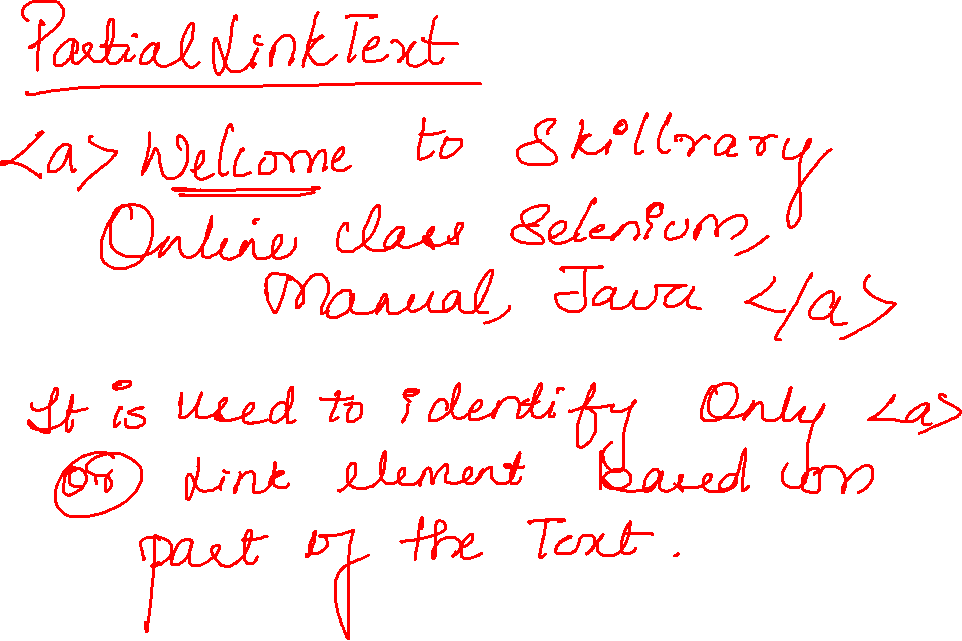 Partial LinkText
<a> Welcome to Skillrary
Online class Selenium,
Manual, Java </a>
It is used to identify Only <a>
or Link element based on
part of the Text.